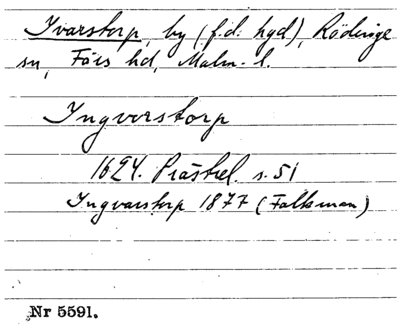 Ivarstorp, by (f.d. hgd), Rödinge
sn, Färs hd, Malm. l.
Ingvorstorp
1624. Prästrel. s. 51
Ingvarstorp 1877 (Falkman)
Nr 5591.